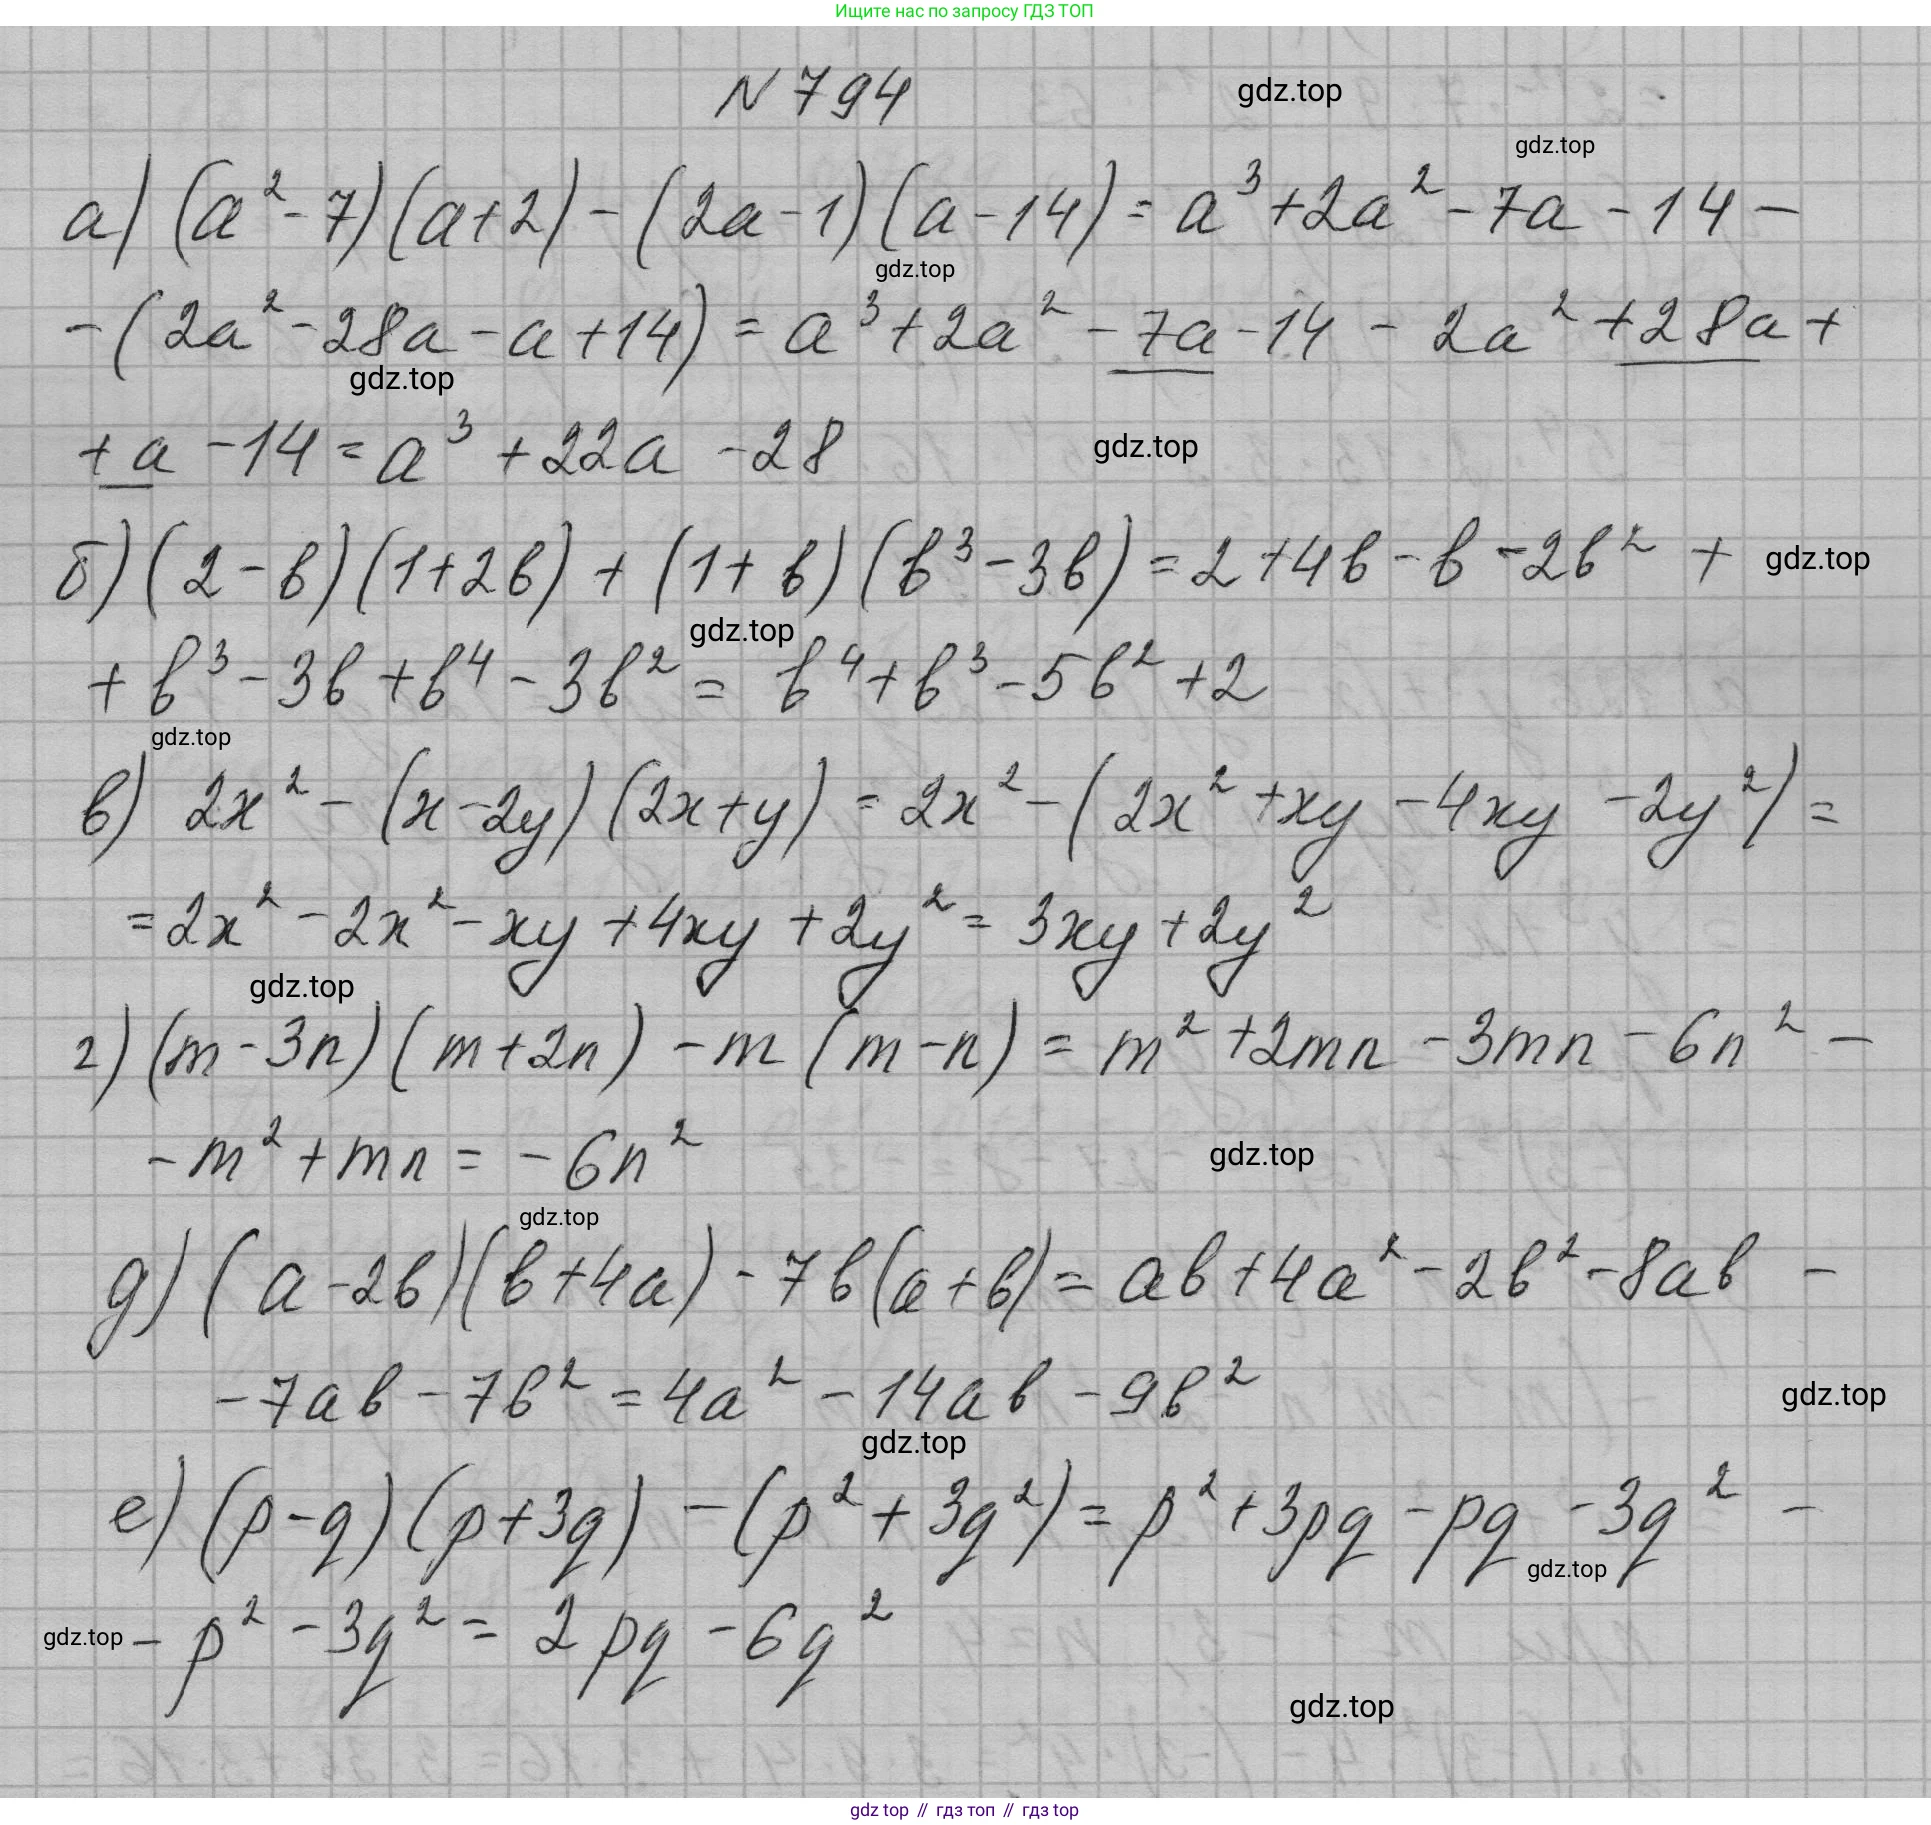 Ищите нас по запросу ГДЗ ТОП
N 794
gdz.top
gdz.top
а) (a² - 7)(a + 2) - (2a - 1)(a - 14) = a³ + 2a² - 7a - 14 -
gdz.top
- (2a² - 28a - a + 14) = a³ + 2a² - 7a - 14 - 2a² + 28a +
gdz.top
+ a - 14 = a³ + 22a - 28
gdz.top
б) (2 - b)(1 + 2b) + (1 + b)(b³ - 3b) = 2 + 4b - b - 2b² +
gdz.top
gdz.top
+ b³ - 3b + b⁴ - 3b² = b⁴ + b³ - 5b² + 2
gdz.top
в) 2x² - (x - 2y)(2x + y) = 2x² - (2x² + xy - 4xy - 2y²) =
= 2x² - 2x² - xy + 4xy + 2y² = 3xy + 2y²
gdz.top
г) (m - 3n)(m + 2n) - m(m - n) = m² + 2mn - 3mn - 6n² -
- m² + mn = - 6n²
gdz.top
gdz.top
д) (a - 2b)(b + 4a) - 7b(a + b) = ab + 4a² - 2b² - 8ab -
- 7ab - 7b² = 4a² - 14ab - 9b²
gdz.top
gdz.top
е) (p - q)(p + 3q) - (p² + 3q²) = p² + 3pq - pq - 3q² -
gdz.top
gdz.top
- p² - 3q² = 2pq - 6q²
gdz.top
gdz top // гдз топ // гдз top